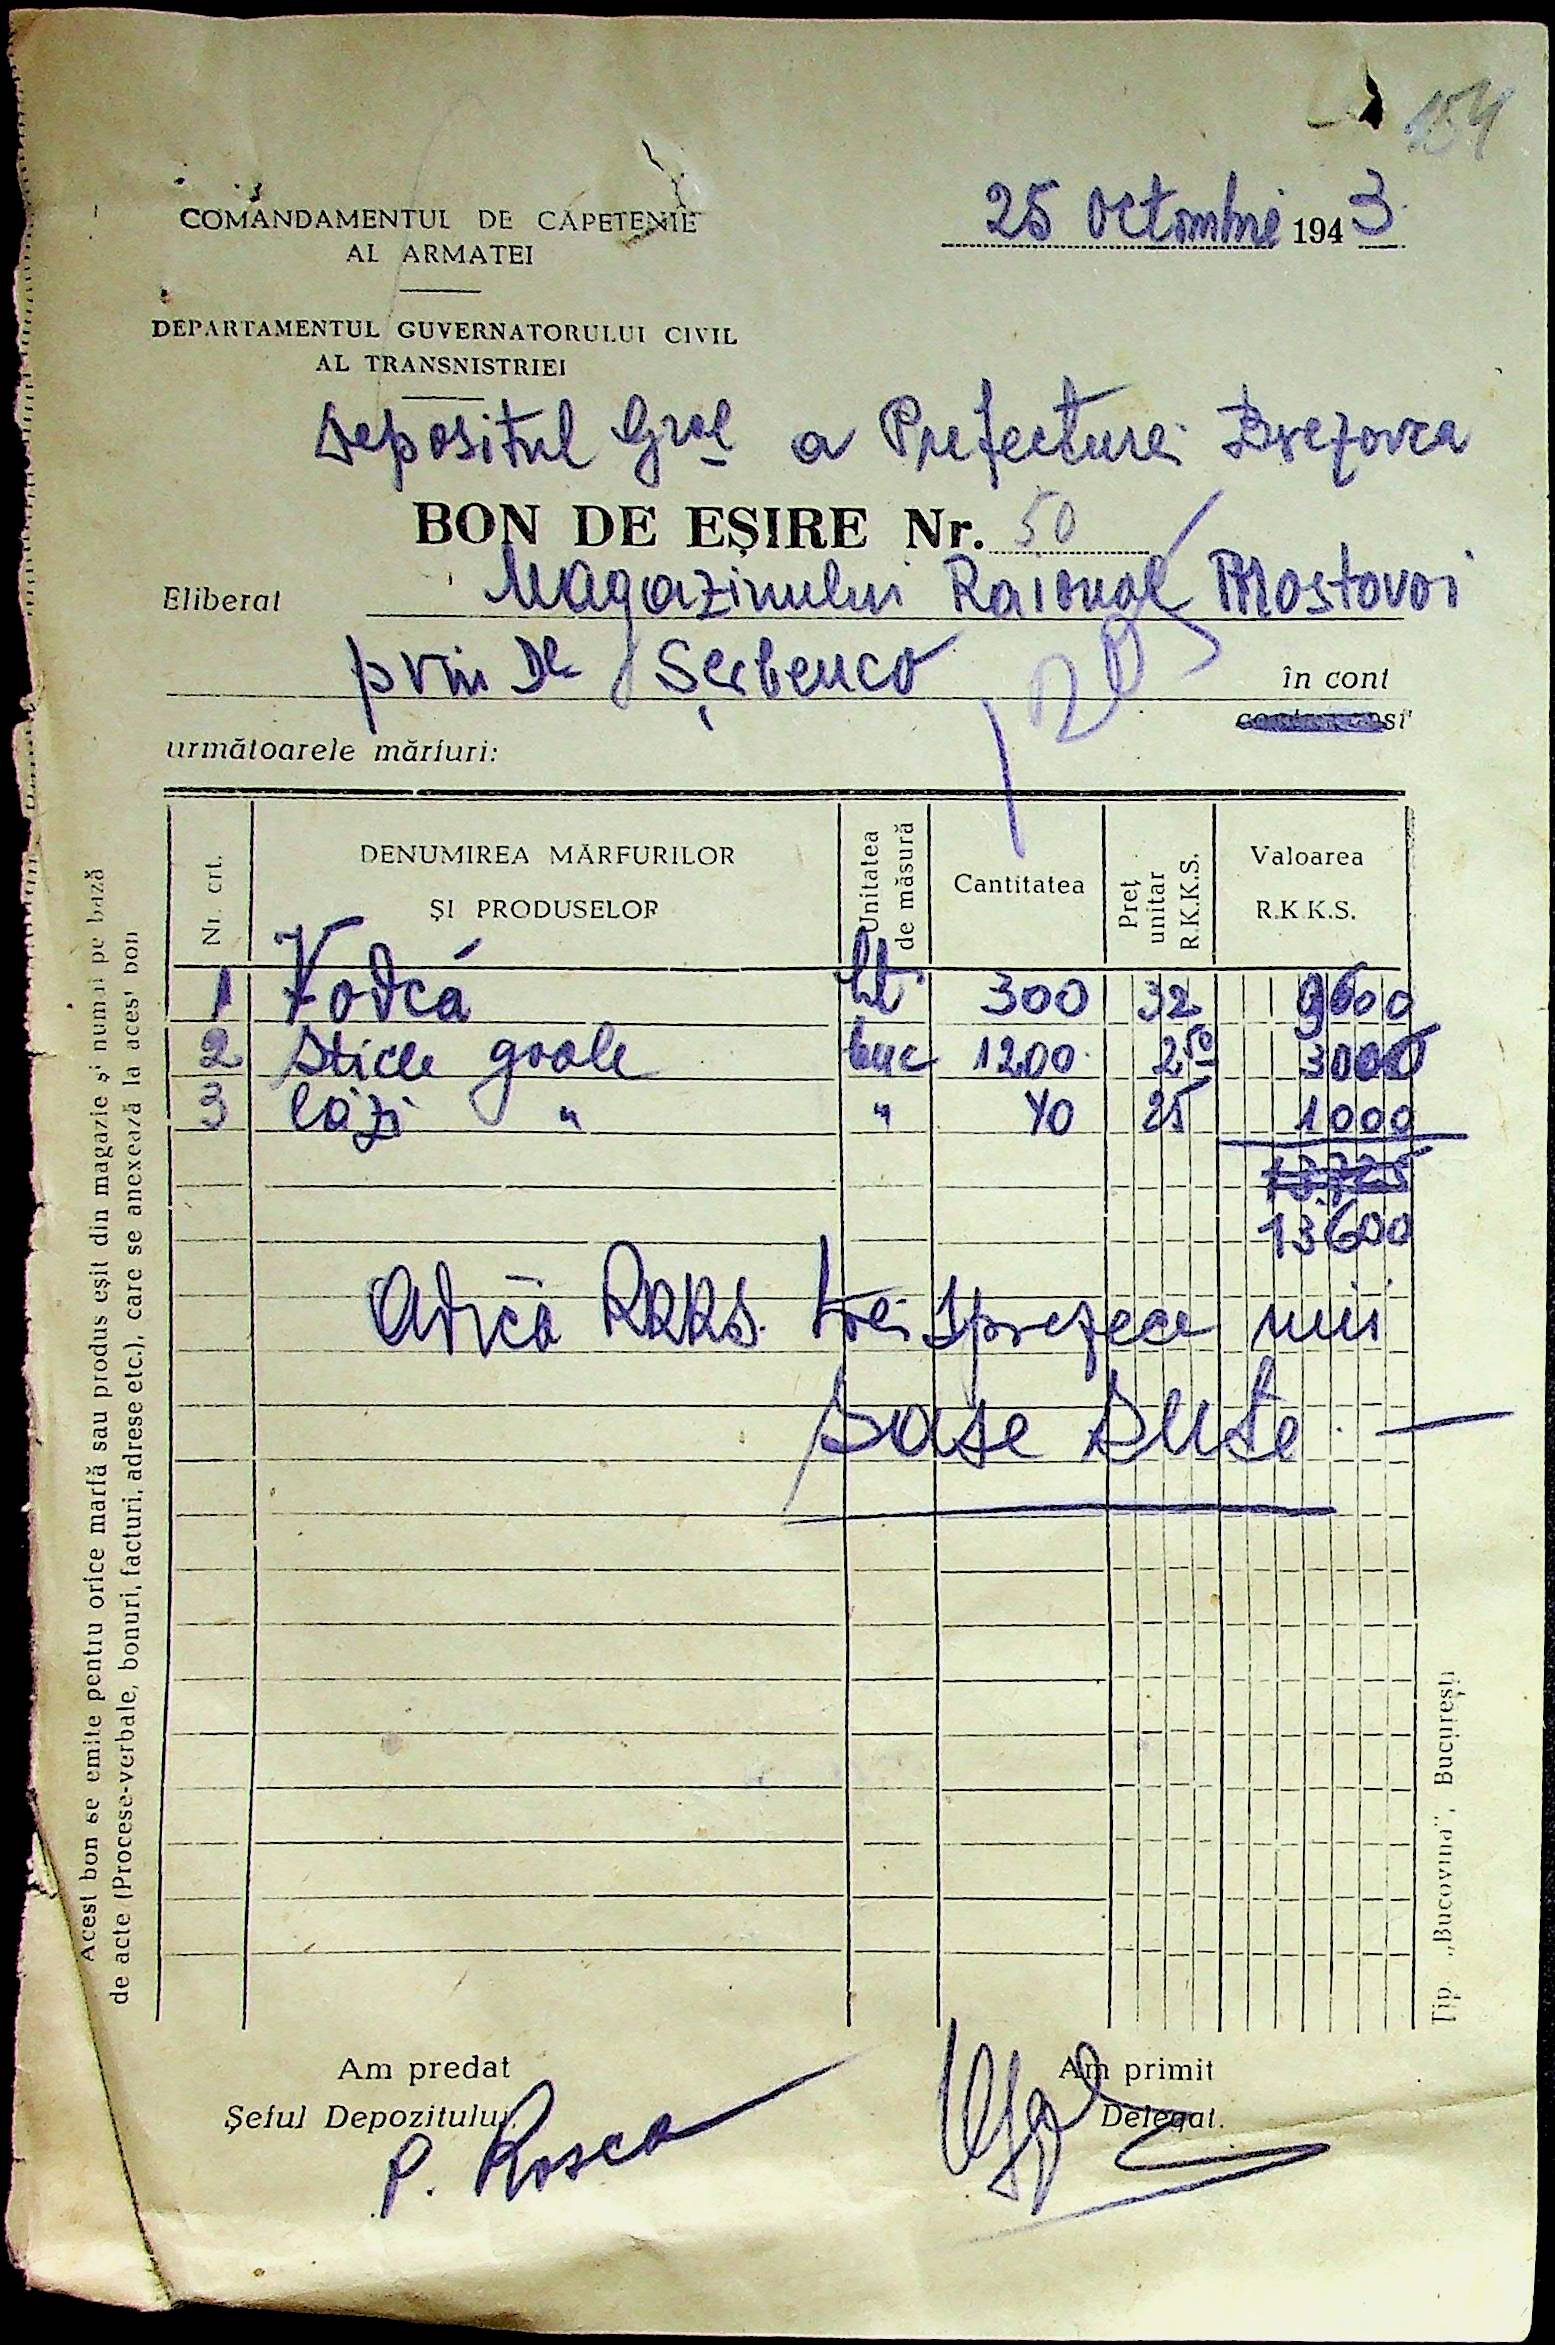 154
25 Octombrie 1943
COMANDAMENTUL DE CAPETENIE
AL ARMATEI
DEPARTAMENTUL GUVERNATORULUI CIVIL
AL TRANSNISTRIEI
Depositul Gral a Prefecturei Brezovca
BON DE EȘIRE Nr. 50
Eliberat Magazinului Raional Mostovoi
prin Dl Șerbenco în cont
următoarele mărfuri:
Nr. crt. DENUMIREA MĂRFURILOR ȘI PRODUSELOR Unitatea de măsură Cantitatea Preț unitar R.K.K.S. Valoarea R.K.K.S.
1 Vodcă Lt 300 32 9600
2 Sticle goale buc 1200 2 50 3000
3 Lăzi " " 40 25 1000
13.725
13600
Adică RKKS. treisprezece mii
șase sute —
Am predat
Șeful Depozitului,
P. Rosca
Am primit
Delegat.
Acest bon se emite pentru orice marfă sau produs eșit din magazie și numai pe bază
de acte (Procese-verbale, bonuri, facturi, adrese etc.), care se anexează la acest bon
Tip. „Bucovina", București